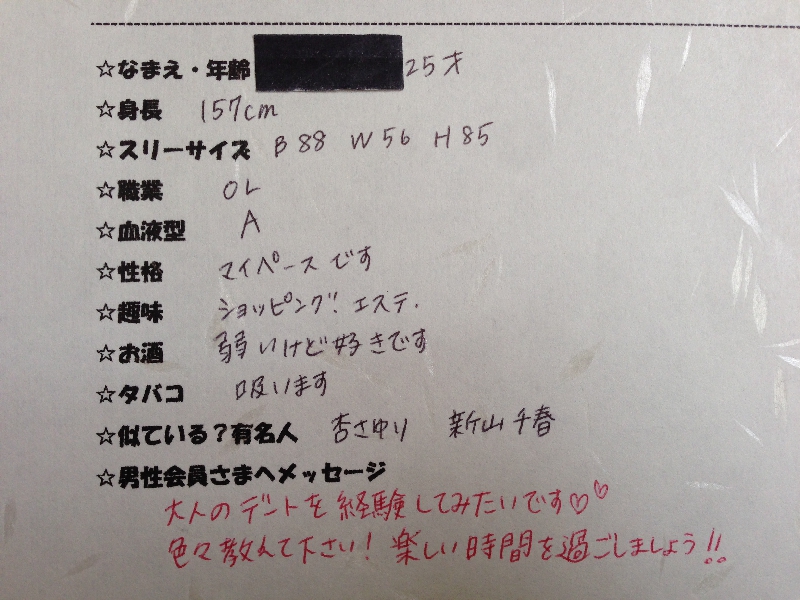 ☆なまえ・年齢 25才
☆身長 157cm
☆スリーサイズ B 88 W 56 H 85
☆職業 OL
☆血液型 A
☆性格 マイペースです
☆趣味 ショッピング、エステ.
☆お酒 弱いけど好きです
☆タバコ 吸います
☆似ている？有名人 杏さゆり 新山千春
☆男性会員さまへメッセージ
大人のデートを経験してみたいです♡♡
色々教えて下さい！楽しい時間を過ごしましょう!!